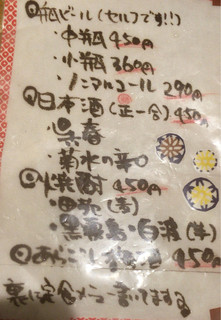 ◎瓶ビール(セルフです!!)
・中瓶450円
・小瓶360円
・ノンアルコール290円
◎日本酒(正一合)450円
・呉春
・菊水の辛口
◎焼酎450円
・田苑(麦)
・黒霧島・白波(芋)
◎あらごし 450円
裏に定食メニュー書いてます